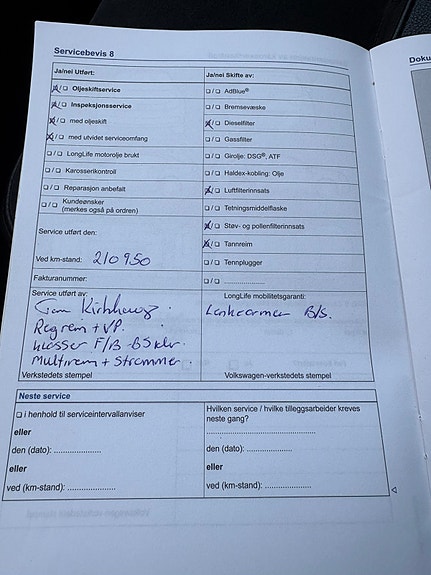 Servicebevis 8
Doku
Ja/nei Utført:
Ja/nei Skifte av:
Oljeskiftservice
AdBlue®
Inspeksjonsservice
Bremsevæske
med oljeskift
Dieselfilter
med utvidet serviceomfang
Gassfilter
LongLife motorolje brukt
Girolje: DSG®, ATF
Karosserikontroll
Haldex-kobling: Olje
Reparasjon anbefalt
Luftfilterinnsats
Kundeønsker
(merkes også på ordren)
Tetningsmiddelflaske
Støv- og pollenfilterinnsats
Service utført den:
Tannreim
Ved km-stand: 210950
Tennplugger
Fakturanummer:
....................
Service utført av:
LongLife mobilitetsgaranti:
Reg rem + VP.
F/B
B/S.
Multirem + Strammer.
Verkstedets stempel
Volkswagen-verkstedets stempel
Neste service
i henhold til serviceintervallanviser
Hvilken service / hvilke tilleggsarbeider kreves
neste gang?
eller
den (dato): ....................
den (dato): ....................
eller
eller
ved (km-stand): ....................
ved (km-stand): ....................